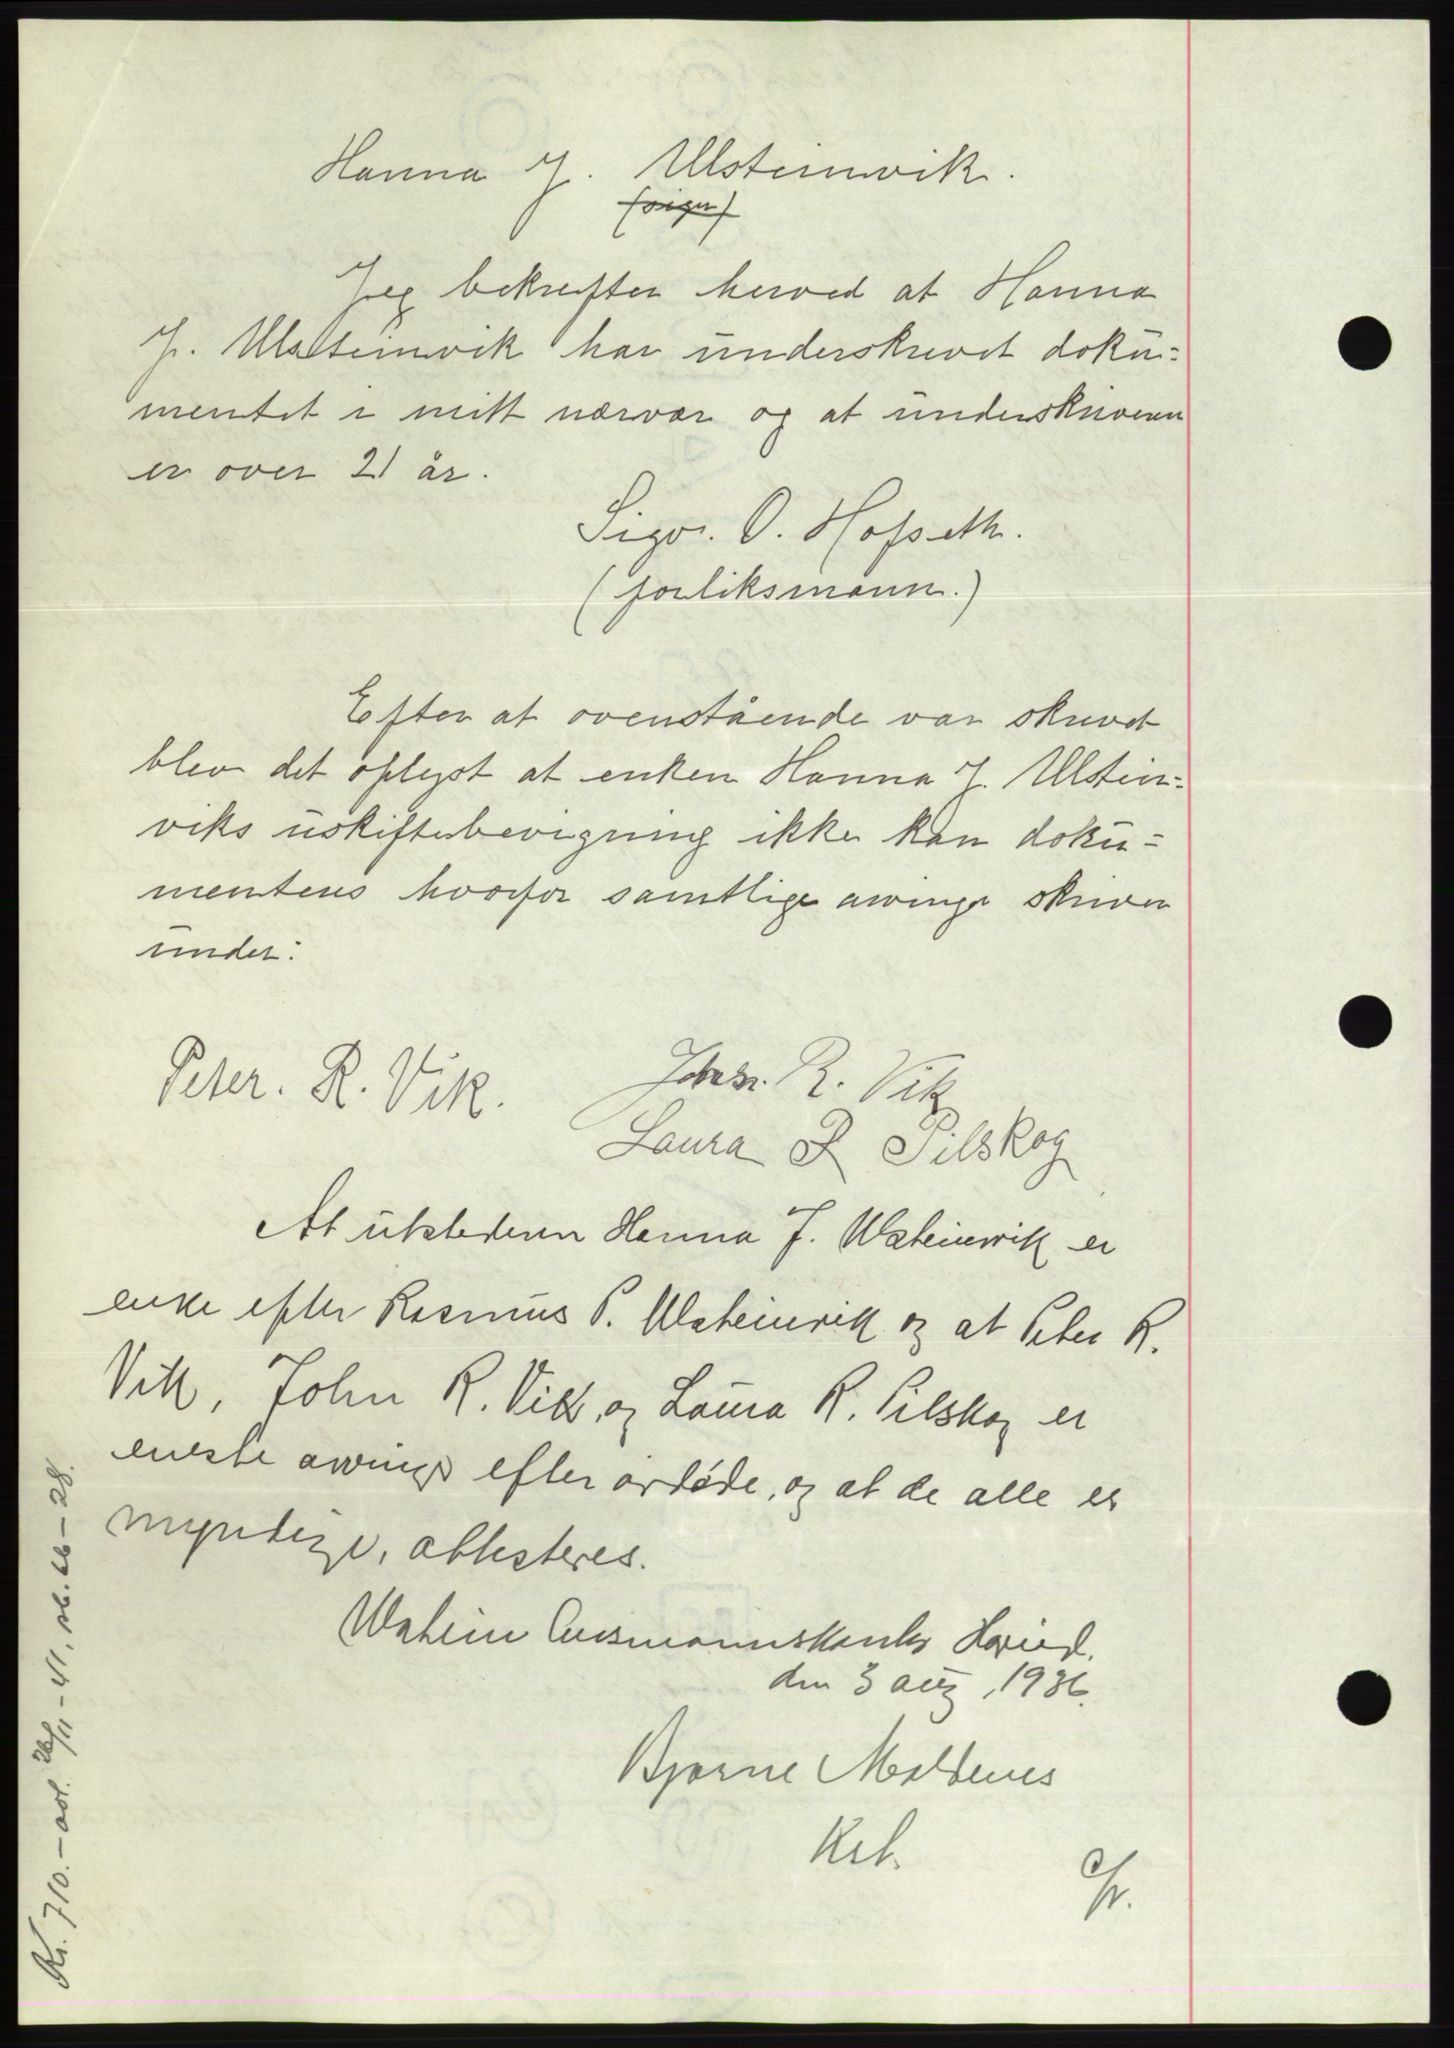 Hanna J. Ulsteinvik.
(sign)
Jeg bekrefter herved at Hanna
J. Ulsteinvik har underskrevet doku=
mentet i mitt nærvær og at underskriveren
er over 21 år.
Sigv. O. Hofseth.
(forliksmann.)
Efter at ovenstående var skrevet
blev det oplyst at enken Hanna J. Ulstein=
viks uskiftebevigning ikke kan doku=
menteres hvorfor samtlige arvinge skriver
under:
Peter. R. Vik.
Johan. R. Vik
Laura R Pilskog
At utstederen Hanna J. Ulsteinvik er
enke efter Rasmus P. Ulsteinvik og at Peter R.
Vik, John R. Vik, og Laura R. Pilskog er
eneste arvinge efter avdøde, og at de alle er
myndige, attesteres.
Ulstein lensmannskontor Hareid.
den 3 aug, 1936.
Bjarne Maldenes
Kst.
Kr. 710.– avl. 26/11-41, sb. 26–28.